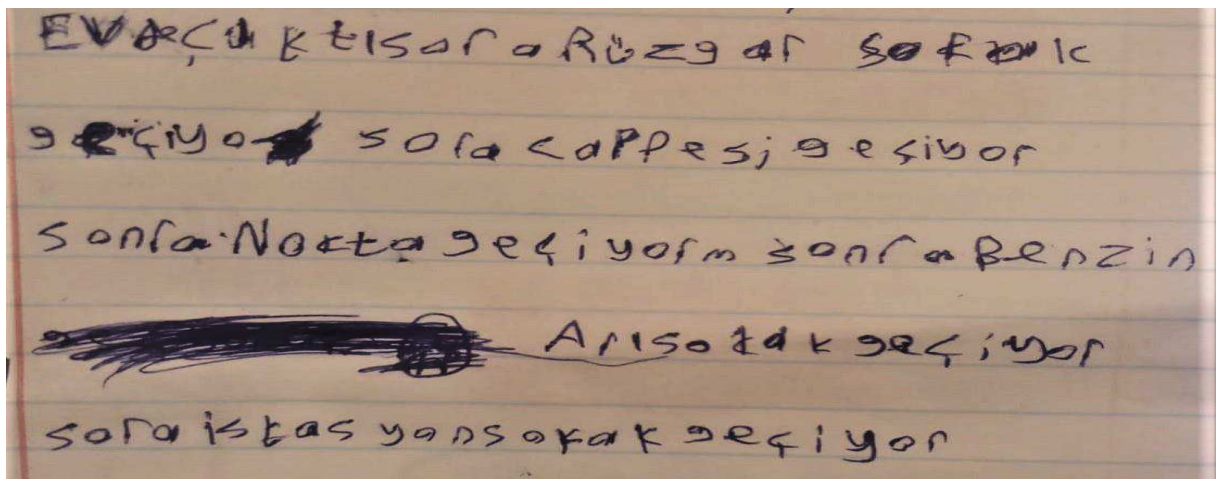 EVdeÇıktısora Rüzgar sokak
geçiyo sora cappesi geçiyor
sonra Nokta geçiyorm sonra Benzin
Arısokak geçiyor
sora istasyonsokak geçiyor